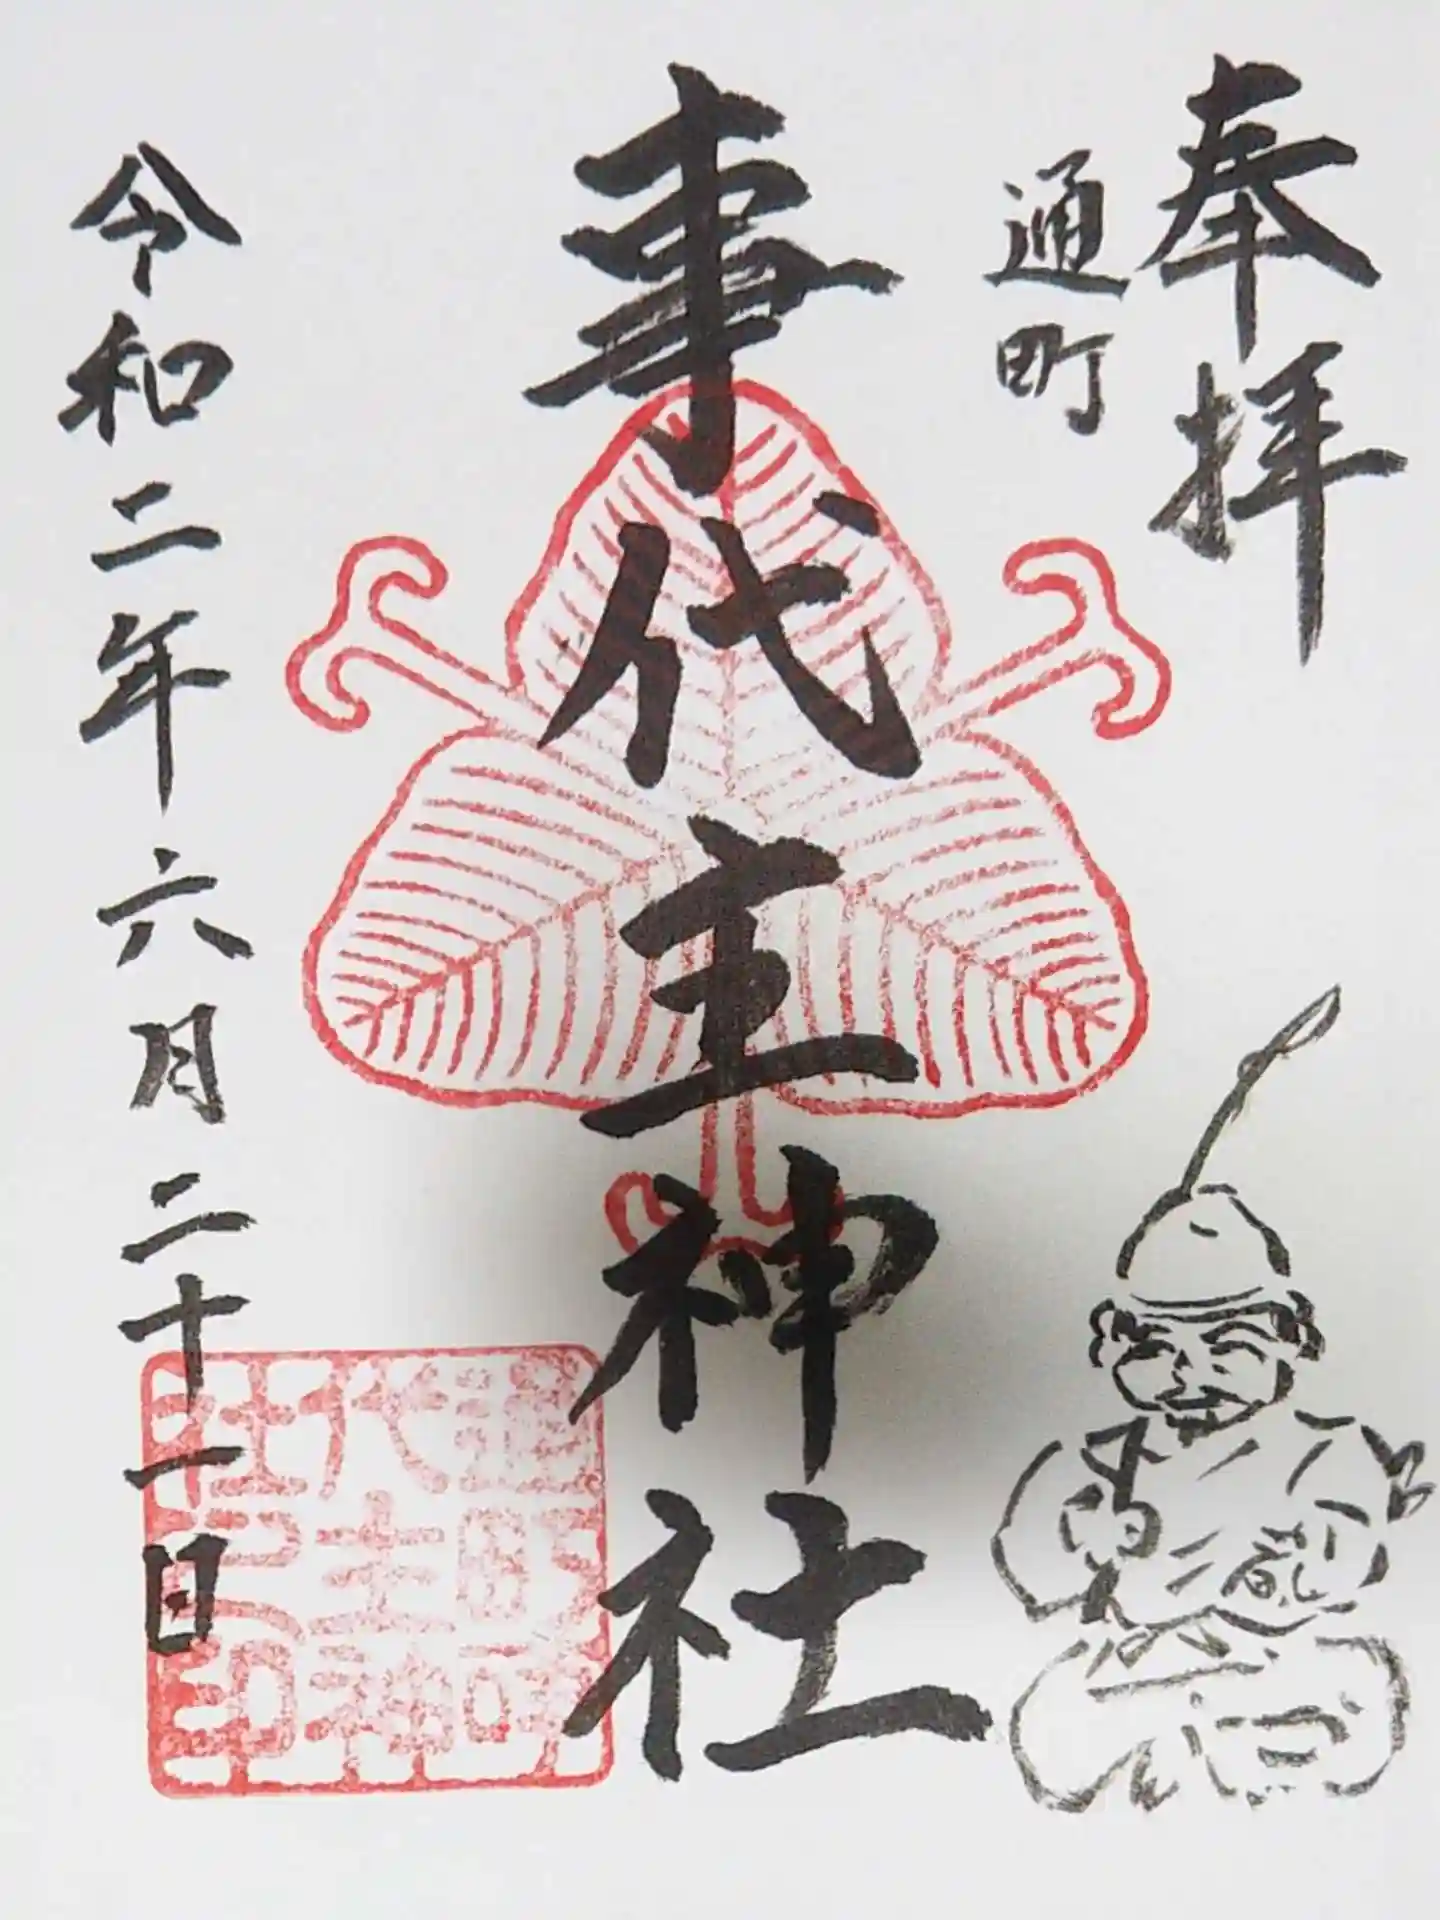 奉拝
通町
事代主神社
令和二年六月二十一日
通町事
代主神
社之印